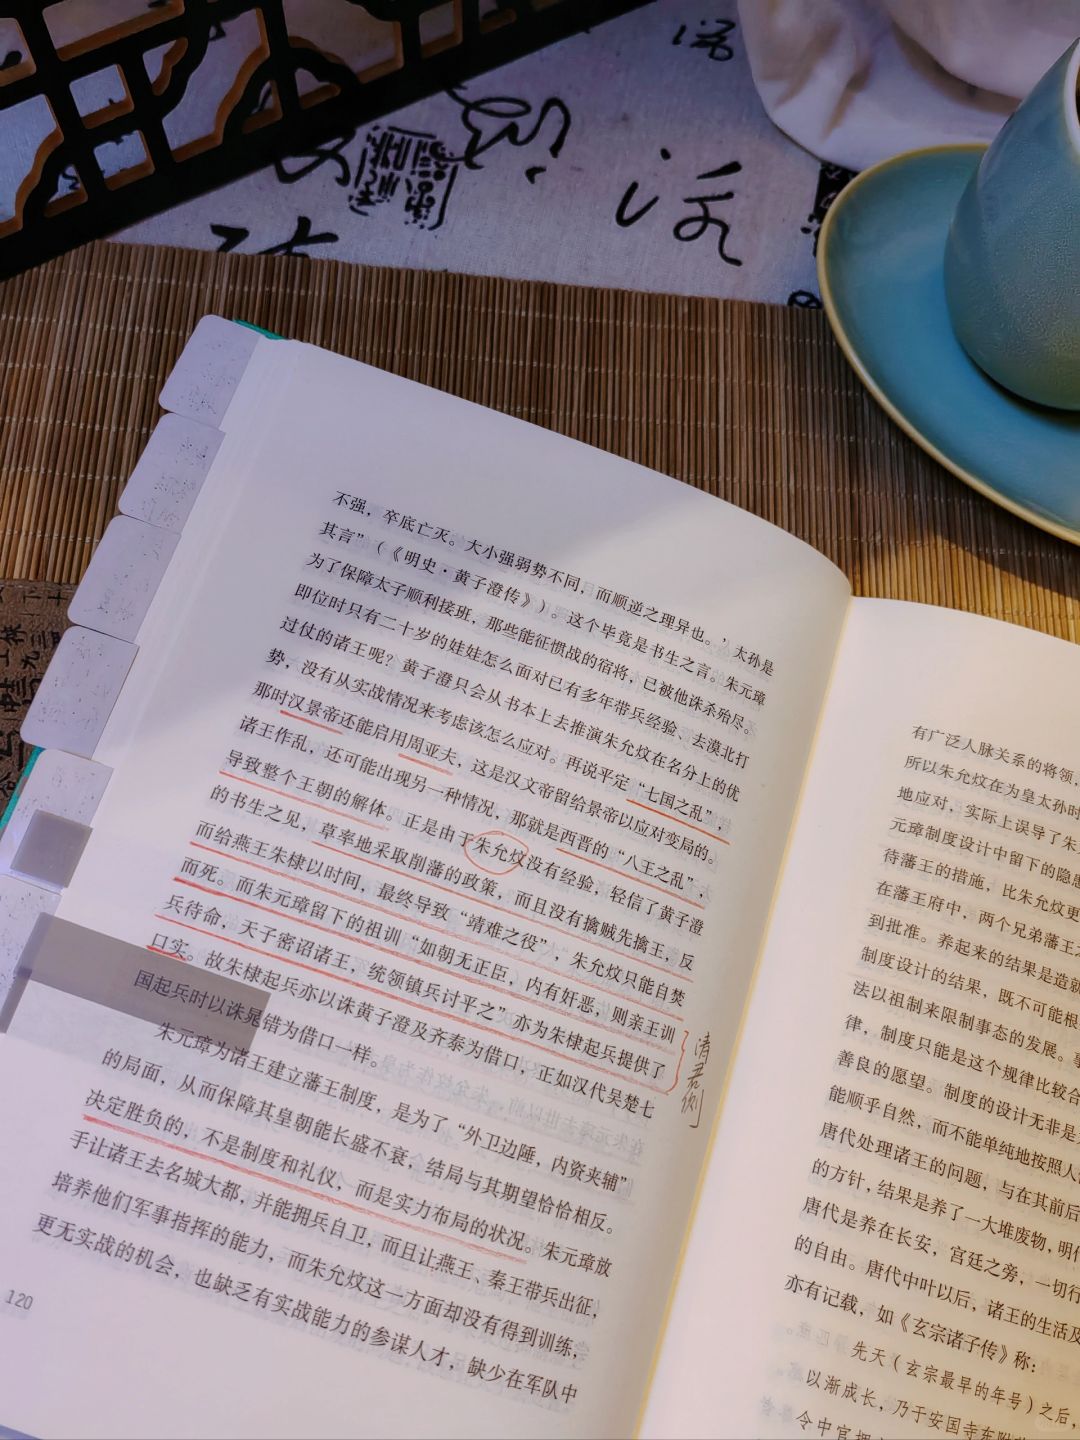 不强，卒底亡灭。大小强弱势不同，而顺逆之理异也。’太孙是
其言”（《明史·黄子澄传》）。这个毕竟是书生之言。朱元璋
为了保障太子顺利接班，那些能征惯战的宿将，已被他诛杀殆尽。
即位时只有二十岁的娃娃怎么面对已有多年带兵经验、去漠北打
过仗的诸王呢？黄子澄只会从书本上去推演朱允炆在名分上的优
势，没有从实战情况来考虑该怎么应对。再说平定“七国之乱”，
那时汉景帝还能启用周亚夫，这是汉文帝留给景帝以应对变局的。
诸王作乱，还可能出现另一种情况，那就是西晋的“八王之乱”，
导致整个王朝的解体。正是由于朱允炆没有经验，轻信了黄子澄
的书生之见，草率地采取削藩的政策，而且没有擒贼先擒王，反
而给燕王朱棣以时间，最终导致“靖难之役”，朱允炆只能自焚
而死。而朱元璋留下的祖训“如朝无正臣，内有奸恶，则亲王训
兵待命，天子密诏诸王，统领镇兵讨平之”亦为朱棣起兵提供了
口实。故朱棣起兵亦以诛黄子澄及齐泰为借口，正如汉代吴楚七
国起兵时以诛晁错为借口一样。
朱元璋为诸王建立藩王制度，是为了“外卫边陲，内资夹辅”
的局面，从而保障其皇朝能长盛不衰，结局与其期望恰恰相反。
决定胜负的，不是制度和礼仪，而是实力布局的状况。朱元璋放
手让诸王去名城大都，并能拥兵自卫，而且让燕王、秦王带兵出征，
培养他们军事指挥的能力，而朱允炆这一方面却没有得到训练，
更无实战的机会，也缺乏有实战能力的参谋人才，缺少在军队中
120
清君侧
有广泛人脉关系的将领，
所以朱允炆在为皇太孙时
地应对，实际上误导了朱
元璋制度设计中留下的隐患
待藩王的措施，比朱允炆更
在藩王府中，两个兄弟藩王之
到批准。养起来的结果是造就
制度设计的结果，既不可能根
法以祖制来限制事态的发展。事
律，制度只能是这个规律比较合
善良的愿望。制度的设计无非是
能顺乎自然，而不能单纯地按照人
唐代处理诸王的问题，与在其前后
的方针，结果是养了一大堆废物，明代
唐代是养在长安，宫廷之旁，一切行
的自由。唐代中叶以后，诸王的生活及
亦有记载，如《玄宗诸子传》称：
先天（玄宗最早的年号）之后，
以渐成长，乃于安国寺东附
令中官押